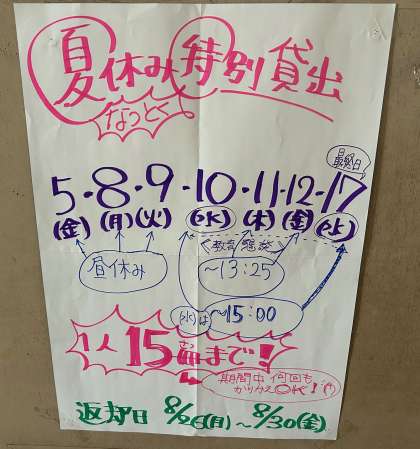 夏休み特別貸出
なっとく
最終日
5・8・9・10・11・12・17
(金)(月)(火)(水)(木)(金)(水)
昼休み
〈教育懇談〉
~13:25
(水)は~15:00
1人15冊まで!
期間中何回も
かりかえOK!
返却日 8/26(月)~8/30(金)